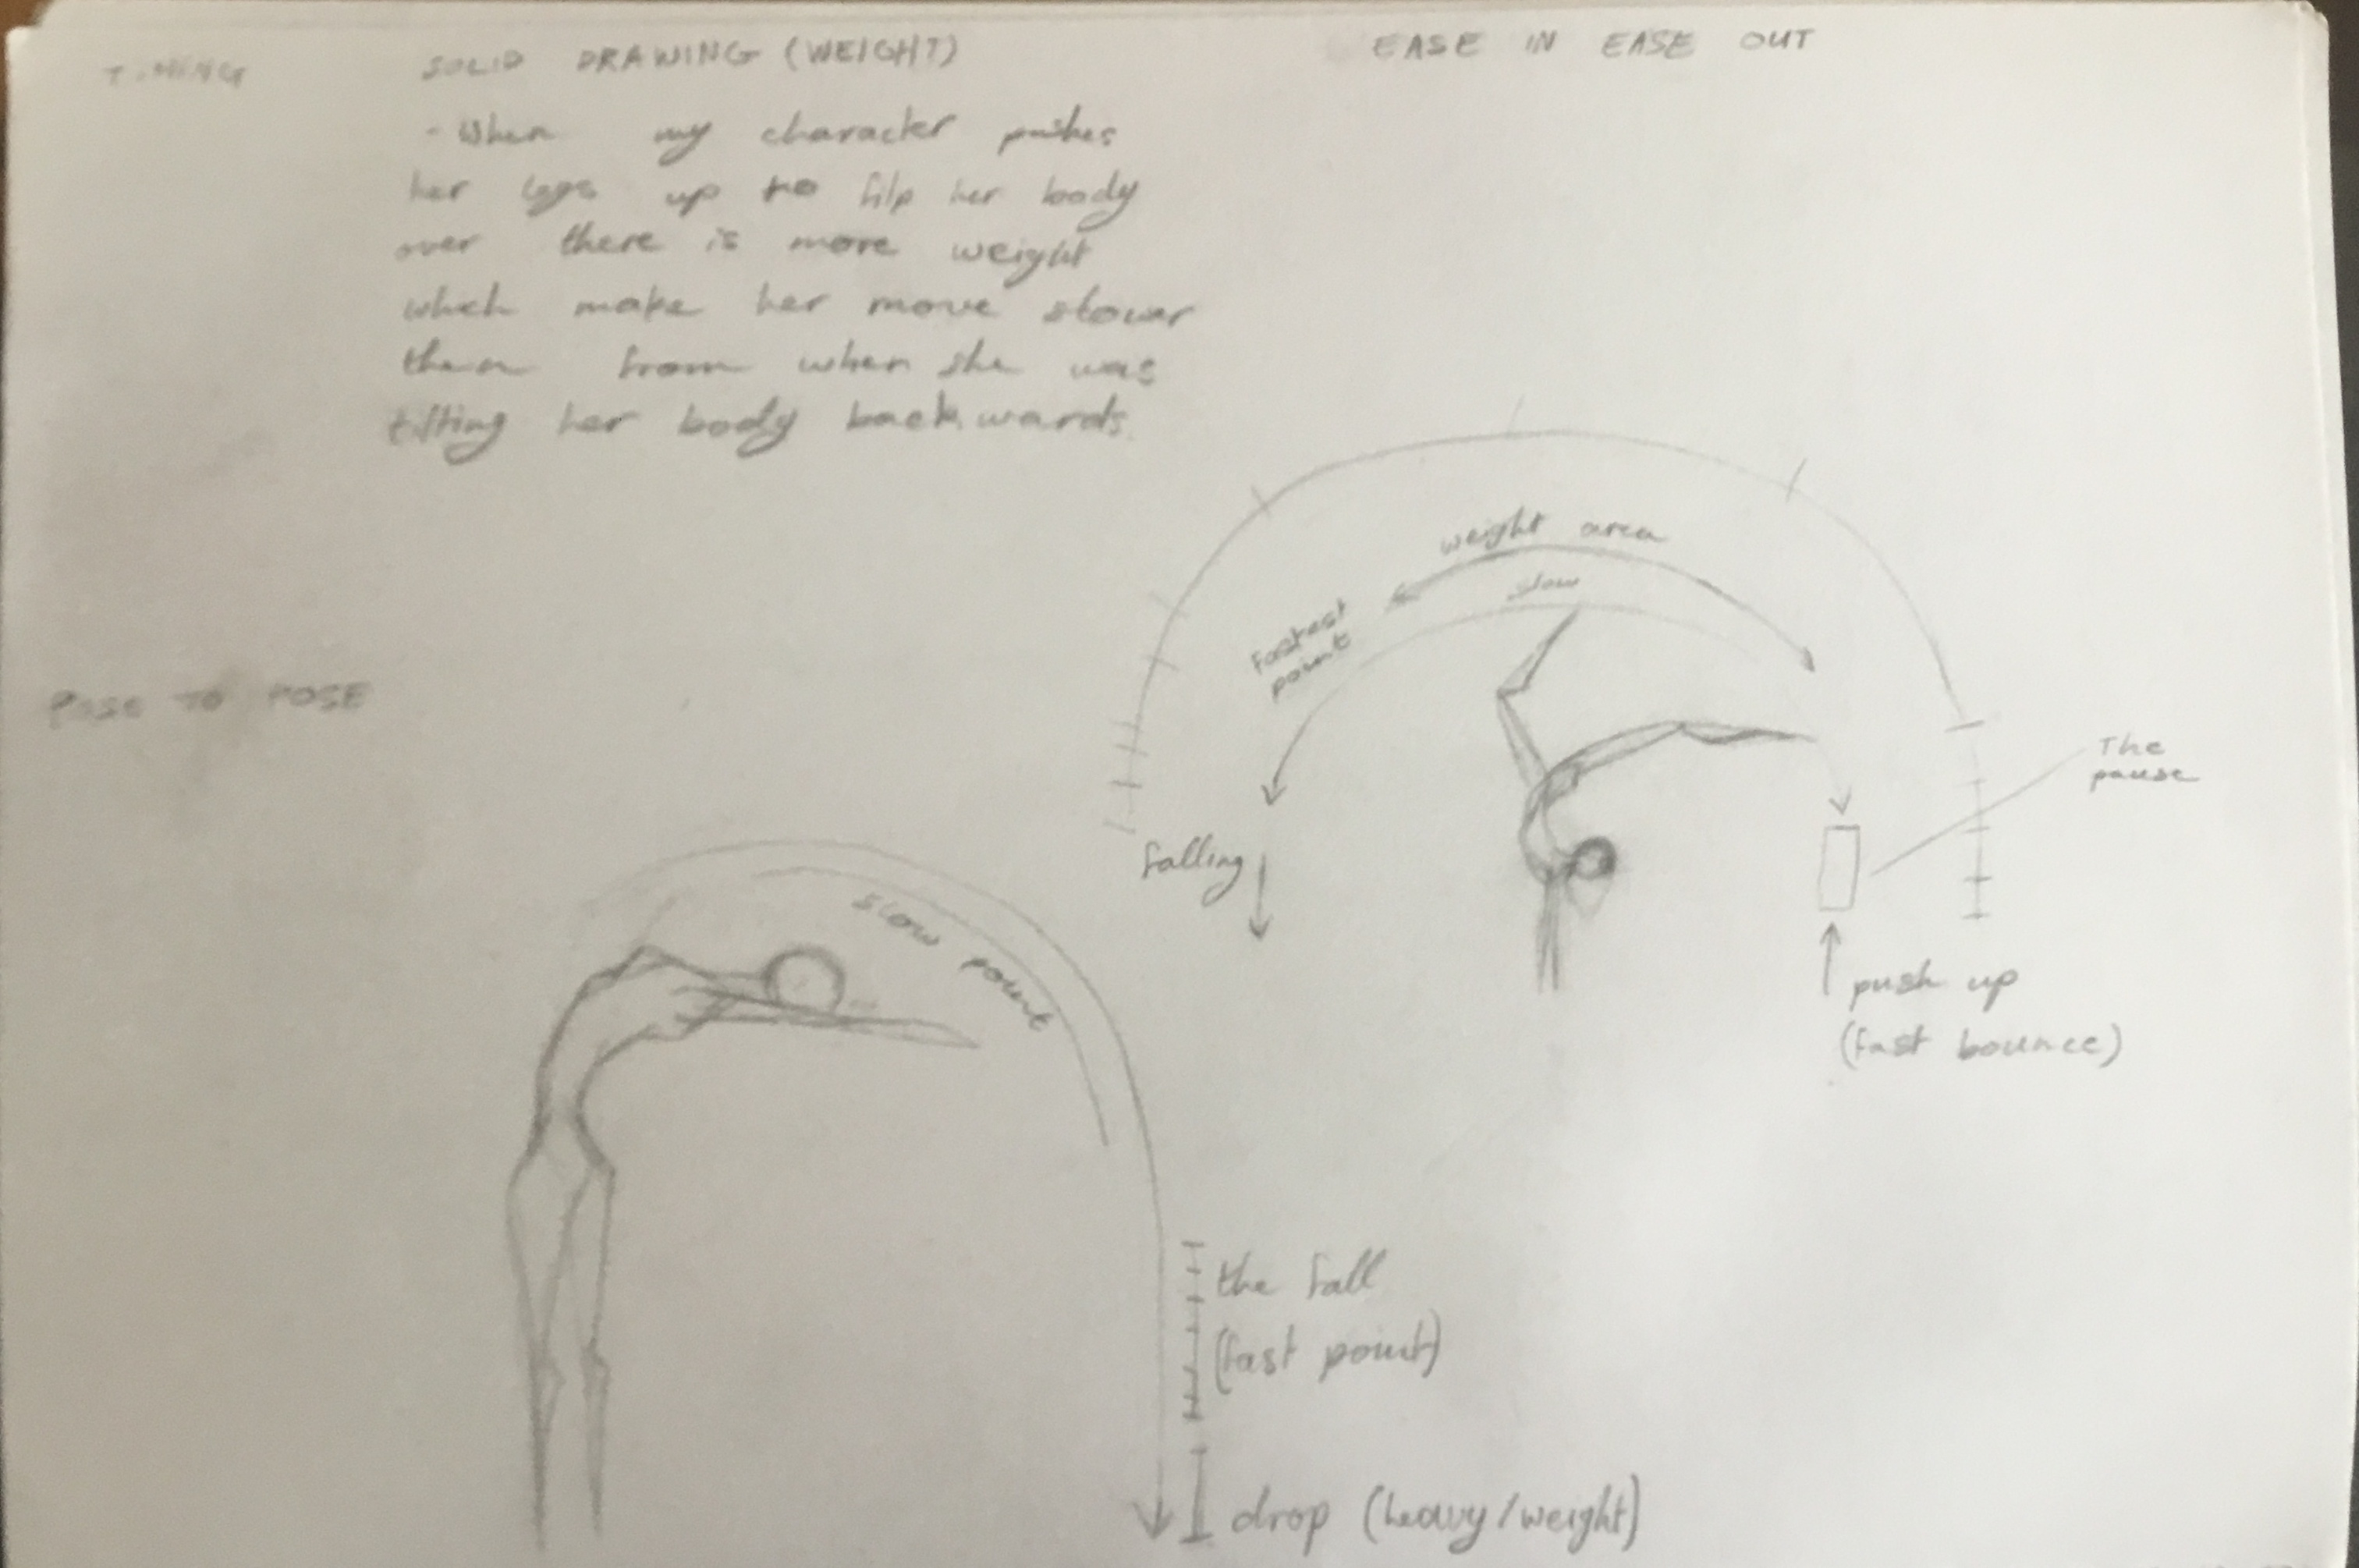 TIMING
SOLID DRAWING (WEIGHT)
- When my character pushes
her legs up to filp her body
over there is more weight
which make her move slower
then from when she was
tilting her body backwards.
EASE IN EASE OUT
POSE TO POSE
weight area
slow
fastest
point
falling
The
pause
push up
(fast bounce)
slow point
the fall
(fast point)
drop (heavy/weight)